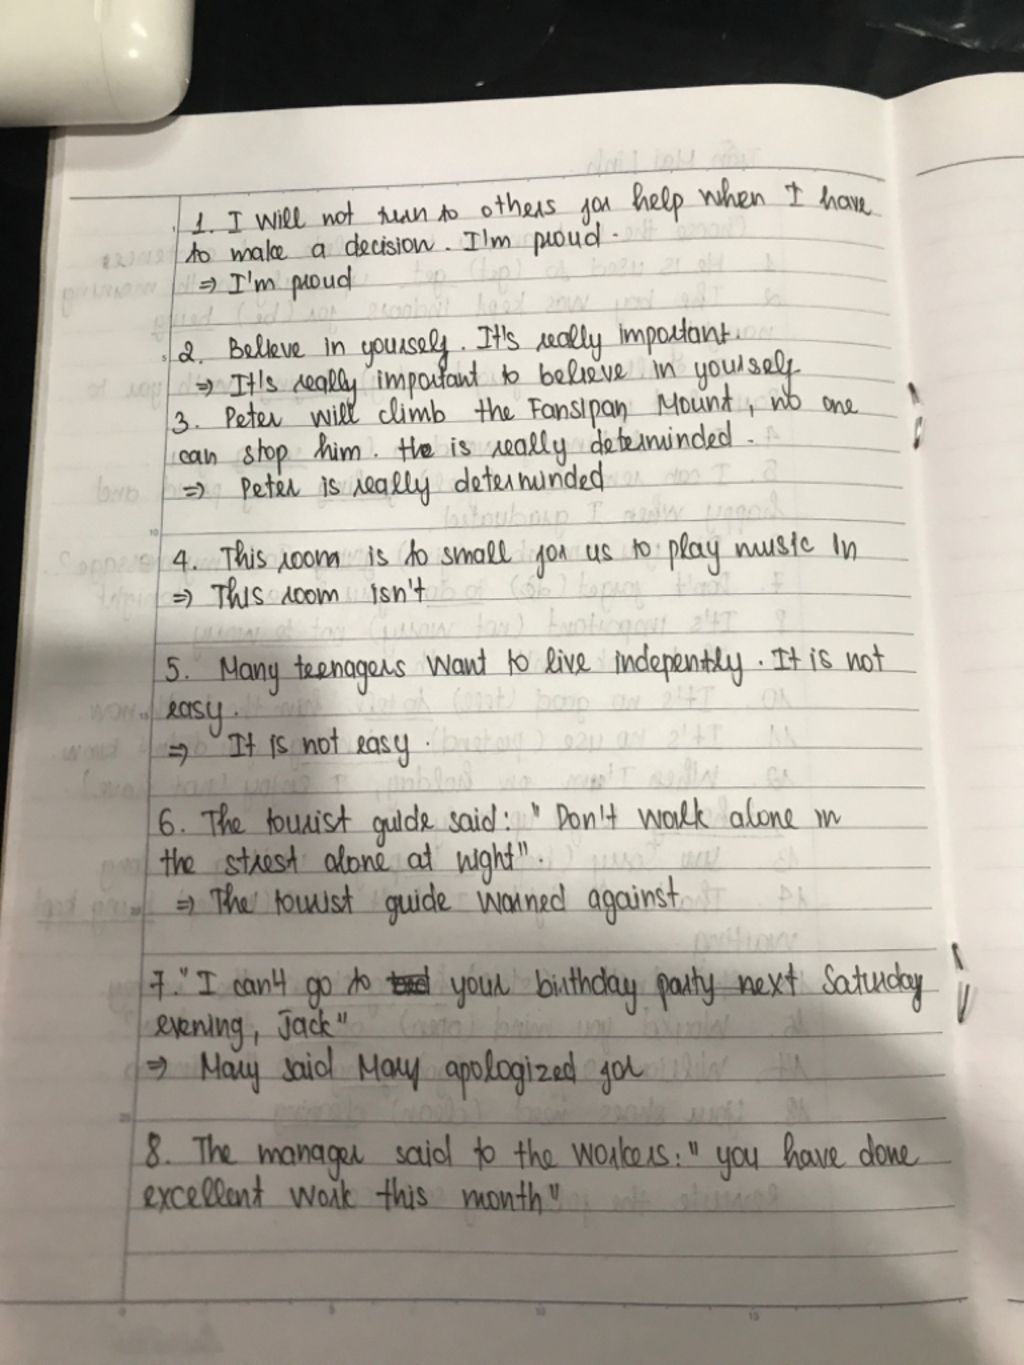 1. I will not turn to others for help when I have
to make a decision. I'm proud.
⇒ I'm proud
2. Believe in yourself. It's really important.
⇒ It's really important to believe in yourself
3. Peter will climb the Fansipan Mount, no one
can stop him. He is really determinded.
⇒ Peter is really determinded
4. This room is to small for us to play music in
⇒ This room isn't
5. Many teenagers want to live indepently. It is not
easy.
⇒ It is not easy.
6. The tourist guide said: "Don't walk alone in
the street alone at night".
⇒ The tourist guide warned against
7. "I can't go to your birthday party next Saturday
evening, Jack"
⇒ Mary said Mary apologized for
8. The manager said to the workers: "you have done
excellent work this month"